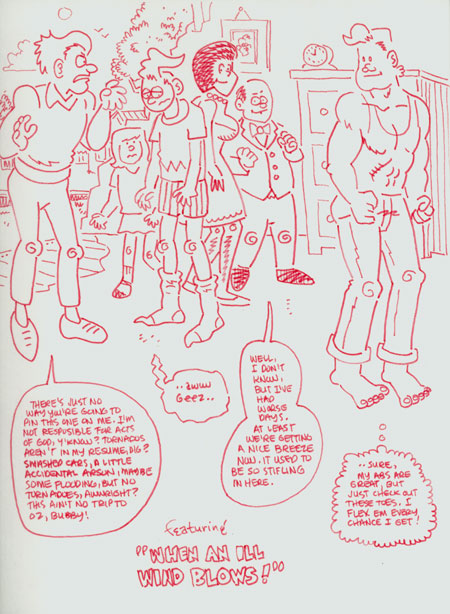 THERE'S JUST NO
WAY YOU'RE GOING TO
PIN THIS ONE ON ME. I'M
NOT RESPOSIBLE FOR ACTS
OF GOD, Y'KNOW? TORNADOS
AREN'T IN MY RESUME, DIG?
SMASHED CARS, A LITTLE
ACCIDENTAL ARSON, MAYBE
SOME FLOODING, BUT NO
TORNADOES, AWWRIGHT?
THIS AIN'T NO TRIP TO
OZ, BUBBY!
..AWW
GEEZ..
WELL,
I DON'T
KNOW,
BUT I'VE
HAD
WORSE
DAYS.
AT LEAST
WE'RE GETTING
A NICE BREEZE
NOW. IT USED TO
BE SO STIFLING
IN HERE.
..SURE,
MY ABS ARE
GREAT, BUT
JUST CHECK OUT
THESE TOES. I
FLEX EM EVERY
CHANCE I GET!
featuring
"WHEN AN ILL
WIND BLOWS!"